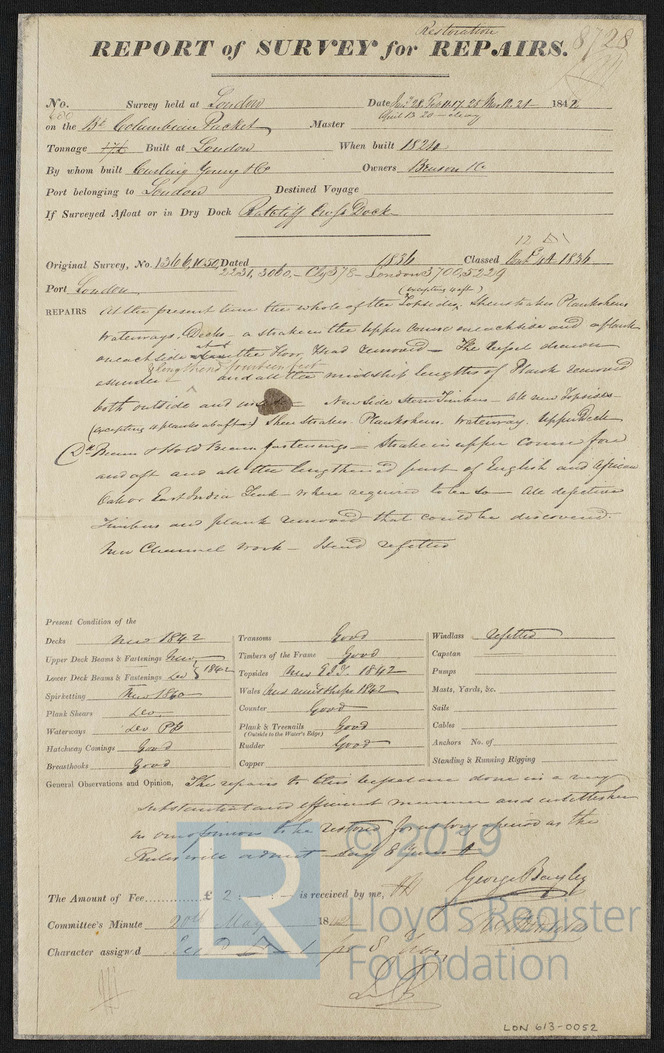 Restoration
REPORT of SURVEY for REPAIRS. 8728
No. Survey held at London Date Jany 28 Feb 11.17.25 Mar 12.21 1842
on the Bk Columbian Packet Master April 13 20
Tonnage Built at London When built 1824
By whom built Curling Young & Co Owners Benson & Co
Port belonging to London Destined Voyage
If Surveyed Afloat or in Dry Dock Ratcliff Dock
Original Survey, No. 1366, Dated 1836 Classed 1836
2231, 3060 - Cly 378 - London 3700, 5229
Port London (excepting 4 aft)
REPAIRS At the present time the whole of the Topsides, Sheerstrakes Plankshears
Waterways. Decks - a strake in the upper course on each side and a plank
on each side the Floor Head removed - The Vessel drawn
lengthened fourteen feet
asunder and all the midship lengths of Plank removed
both outside and New Side Stern Timbers - All new Topsides -
(excepting 4 planks abaft) Sheer Strakes. Plankshears. Waterway. Upper Deck
Do Beams & Hold Beam fastenings - Strake in upper course fore
and aft and all the lengthened part of English and African
Oak or East India Teak - where required to be so - All defective
Timbers and plank removed that could be discovered.
New Channel work - Head refitted
Present Condition of the
Decks New 1842
Upper Deck Beams & Fastenings New
Lower Deck Beams & Fastenings Do 1842
Spirketting New 1840
Plank Shears Do.
Waterways Do PP
Hatchway Comings Good
Breasthooks Good
Transoms Good
Timbers of the Frame Good
Topsides New E.I.T. 1842
Wales New midships 1842
Counter Good
Plank & Treenails Good
(Outside to the Water's Edge)
Rudder Good
Copper
Windlass refitted
Capstan
Pumps
Masts, Yards, &c.
Sails
Cables
Anchors No. of
Standing & Running Rigging
General Observations and Opinion, The repairs to this Vessel are done in a very
substantial and efficient manner and entitles her
in our opinion to be restored for as long a period as the
Rules will admit - say 8 Years A
George Bayley
The Amount of Fee £ 2 : is received by me,
Committee's Minute 20th May 18
Character assigned 8
© 2019
Lloyd's Register
Foundation
LR
LON 613-0052